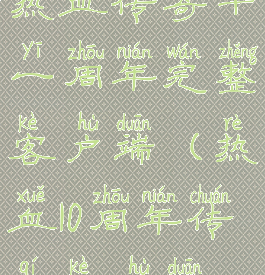 热血传奇十
yī zhōu nián wán zhěng
一周年完整
kè hù duān rè
客户端(热
xuè zhōu nián chuán
血10周年传
qí kè hù duān